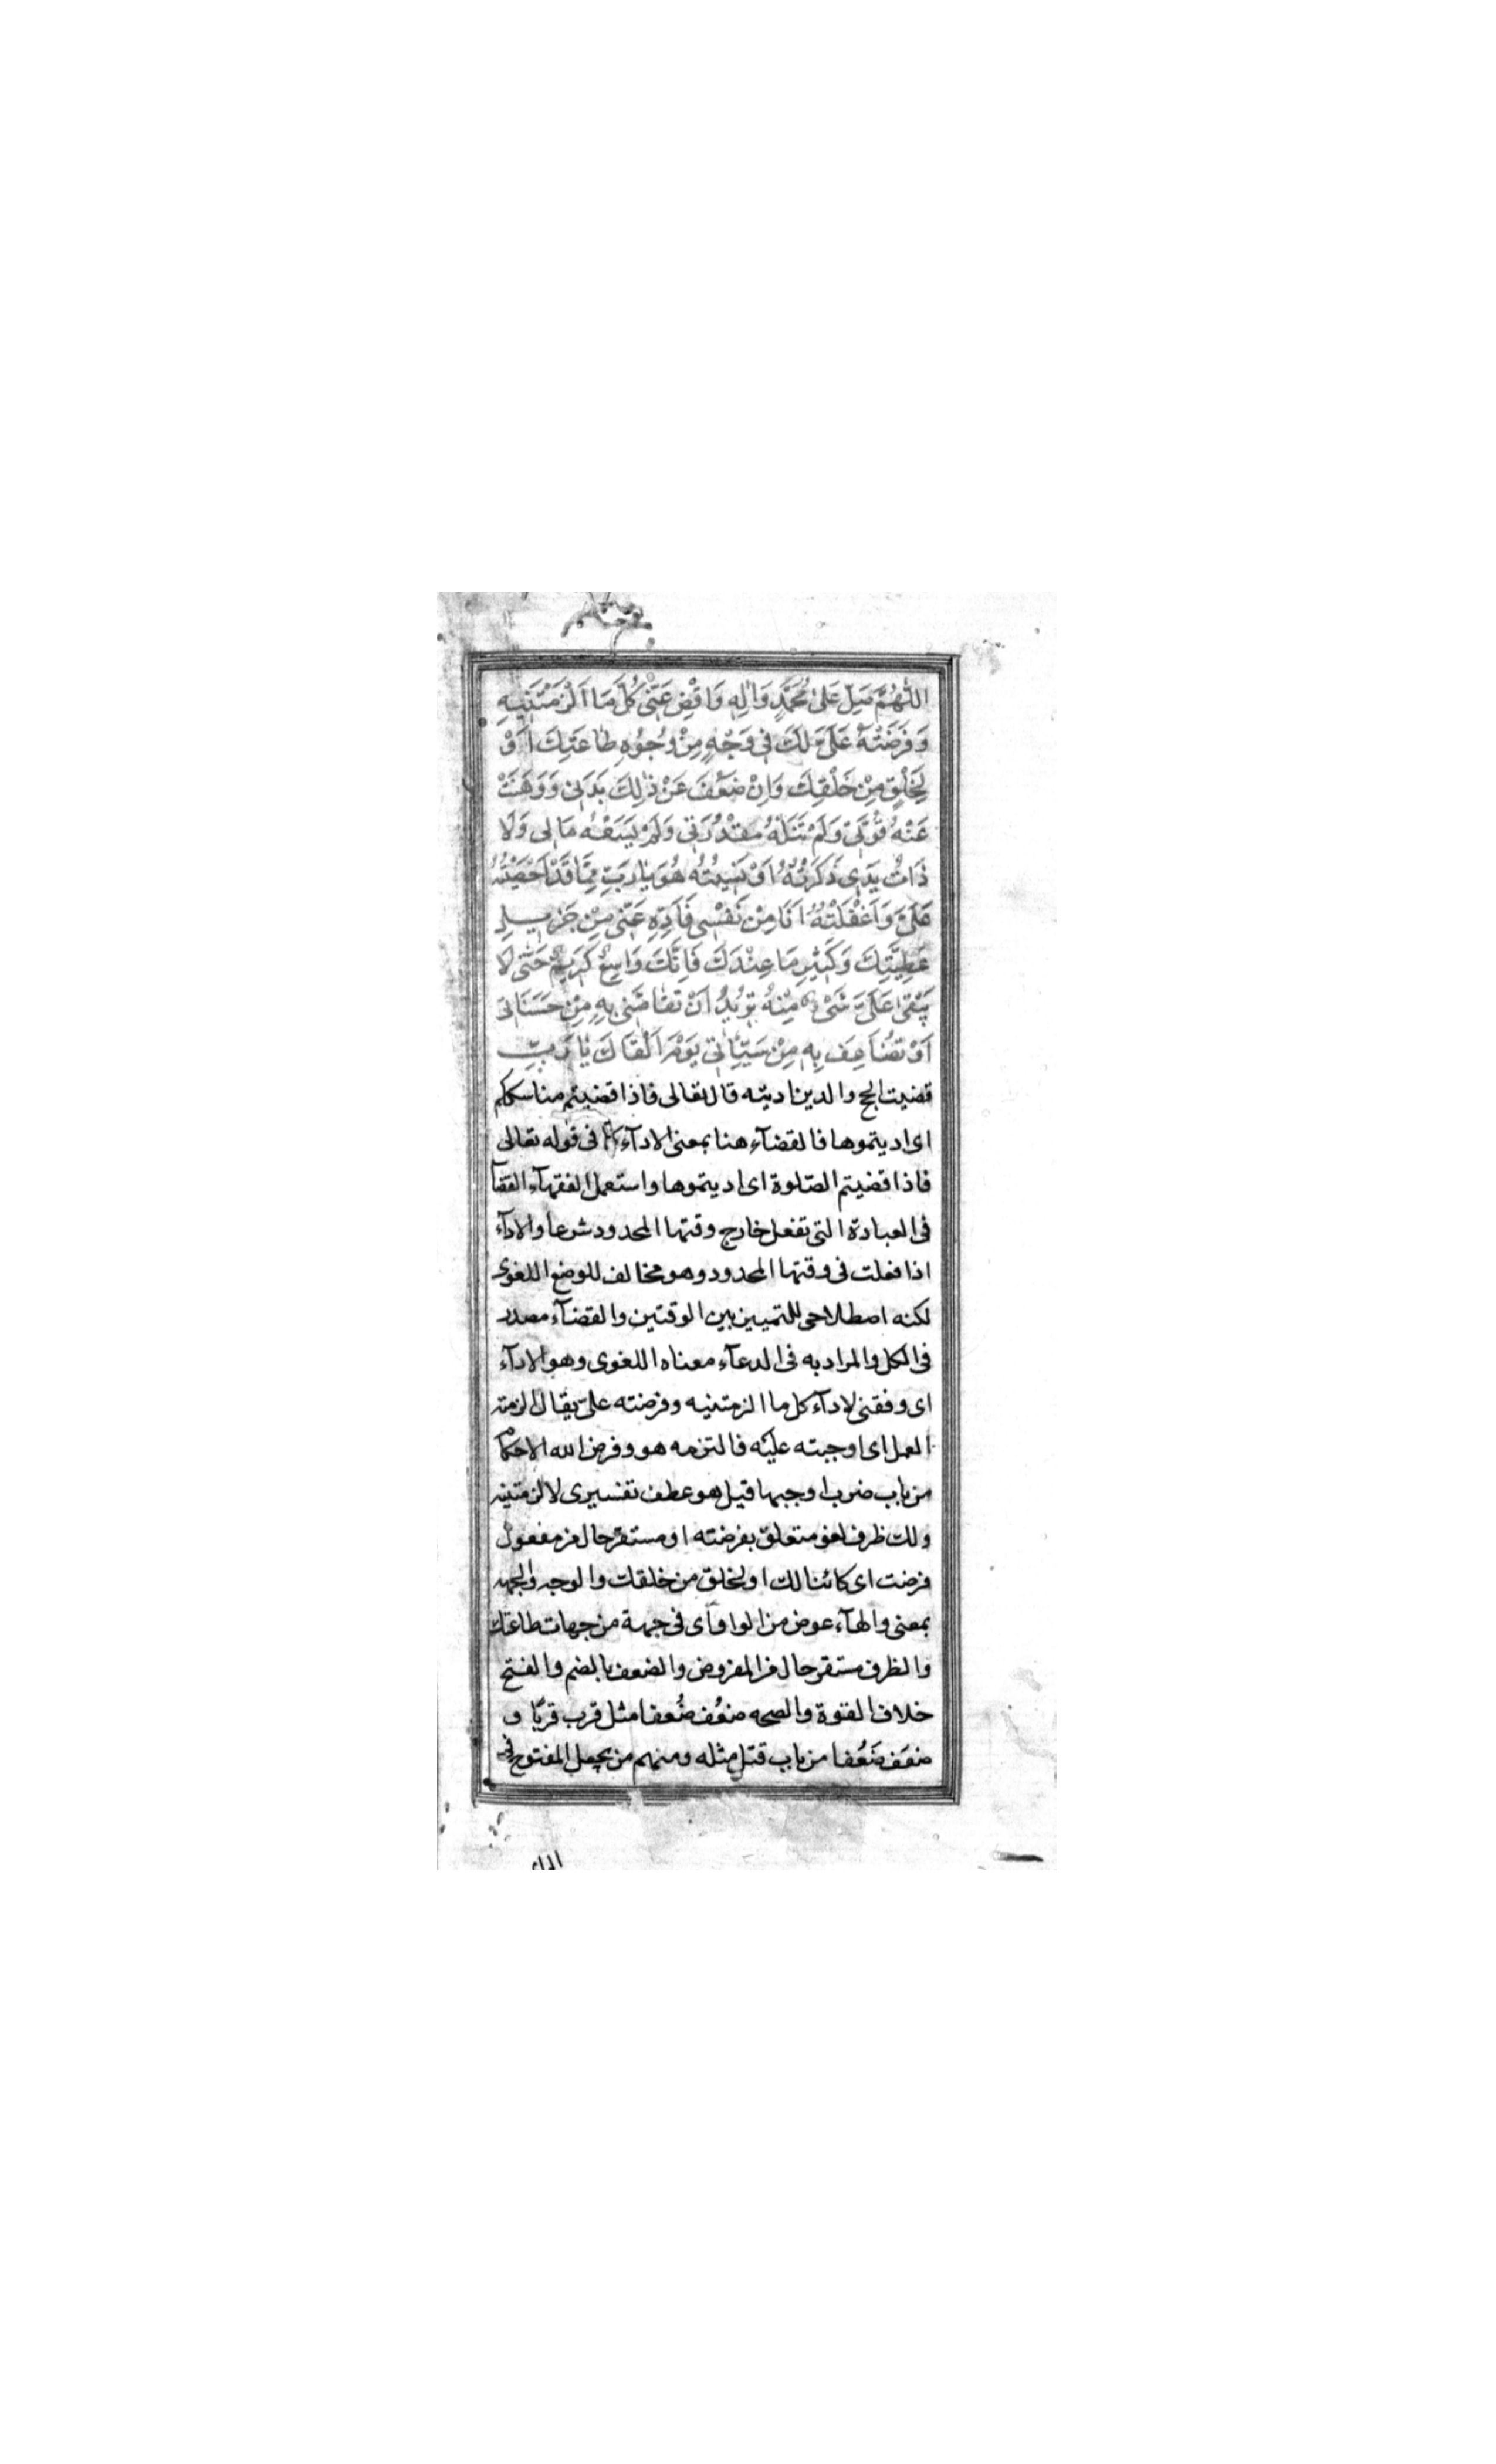 اللّٰهُمَّ صَلِّ عَلىٰ مُحَمَّدٍ وَاٰلِهِ وَاقْضِ عَنّىٖ كُلَّ مَا اَلْزَمْتَنيهِ
وَفَرَضْتَهُ عَلَىَّ لَكَ فى وَجْهٍ مِنْ وُجُوْهِ طاعَتِكَ اَوْ
لِخَلْقٍ مِنْ خَلْقِكَ وَاِنْ ضَعُفَ عَنْ ذٰلِكَ بَدَنى وَوَهَنَتْ
عَنْهُ قُوَّتى وَلَمْ تَنَلْهُ مَقْدُرَتى وَلَمْ يَسَعْهُ مَالى وَلَا
ذَاتُ يَدِى ذَكَرْتُهُ اَوْ نَسِيتُهُ هُوَ يٰا رَبِّ مِمَّا قَدْ اَحْصَيْتَهُ
عَلَىَّ وَاَغْفَلْتُهُ اَنَا مِنْ نَفْسى فَاَدِّهِ عَنّى مِنْ جَزيلِ
عَطِيَّتِكَ وَكَثيرِ مَا عِنْدَكَ فَاِنَّكَ وَاسِعٌ كَريمٌ حَتّٰى لا
يَبْقىٰ عَلَىَّ شَىْءٌ مِنْهُ تُريدُ اَنْ تُقٰاصَّنى بِهِ مِنْ حَسَنَاتى
اَوْ تُضَاعِفَ بِهِ مِنْ سَيِّئَاتى يَوْمَ اَلْقَاكَ يٰا رَبِّ
قضيت الحج والدين اديته قال تعالى فاذا قضيتم مناسككم
اى اديتموها فالقضآء هنا بمعنى الادآء كما فى قوله تعالى
فاذا قضيتم الصّلوة اى اديتموها واستعمل الفقهآء القضآ
فى العبادة التى تفعل خارج وقتها المحدود شرعا والادآء
اذا فعلت فى وقتها المحدود وهو مخالف للوضع اللغوى
لكنه اصطلاحى للتمييز بين الوقتين والقضآء مصدر
فى الكل والمراد به فى الدعآء معناه اللغوى وهو الادآء
اى وفقنى لادآء كل ما الزمتنيه وفرضته علىّ يقال الزمته
العمل اى اوجبته عليه فالتزمه هو وفرض الله الاحكام
من باب ضرب اوجبها قيل هو عطف تفسيرى لالزمتنيه
ولك ظرف لغو متعلق بفرضته او مستقر حال من مفعول
فرضت اى كائنا لك او لخلق من خلقك والوجه والجهه
بمعنى والهآء عوض من الواو اى فى جهة من جهات طاعتك
والظرف مستقر حال من المفروض والضعف بالضم والفتح
خلاف القوة والصحه ضعُف ضُعفا مثل قرب قربًا و
ضعَف ضَعُفا من باب قتل مثله ومنهم من يجعل المفتوح فى